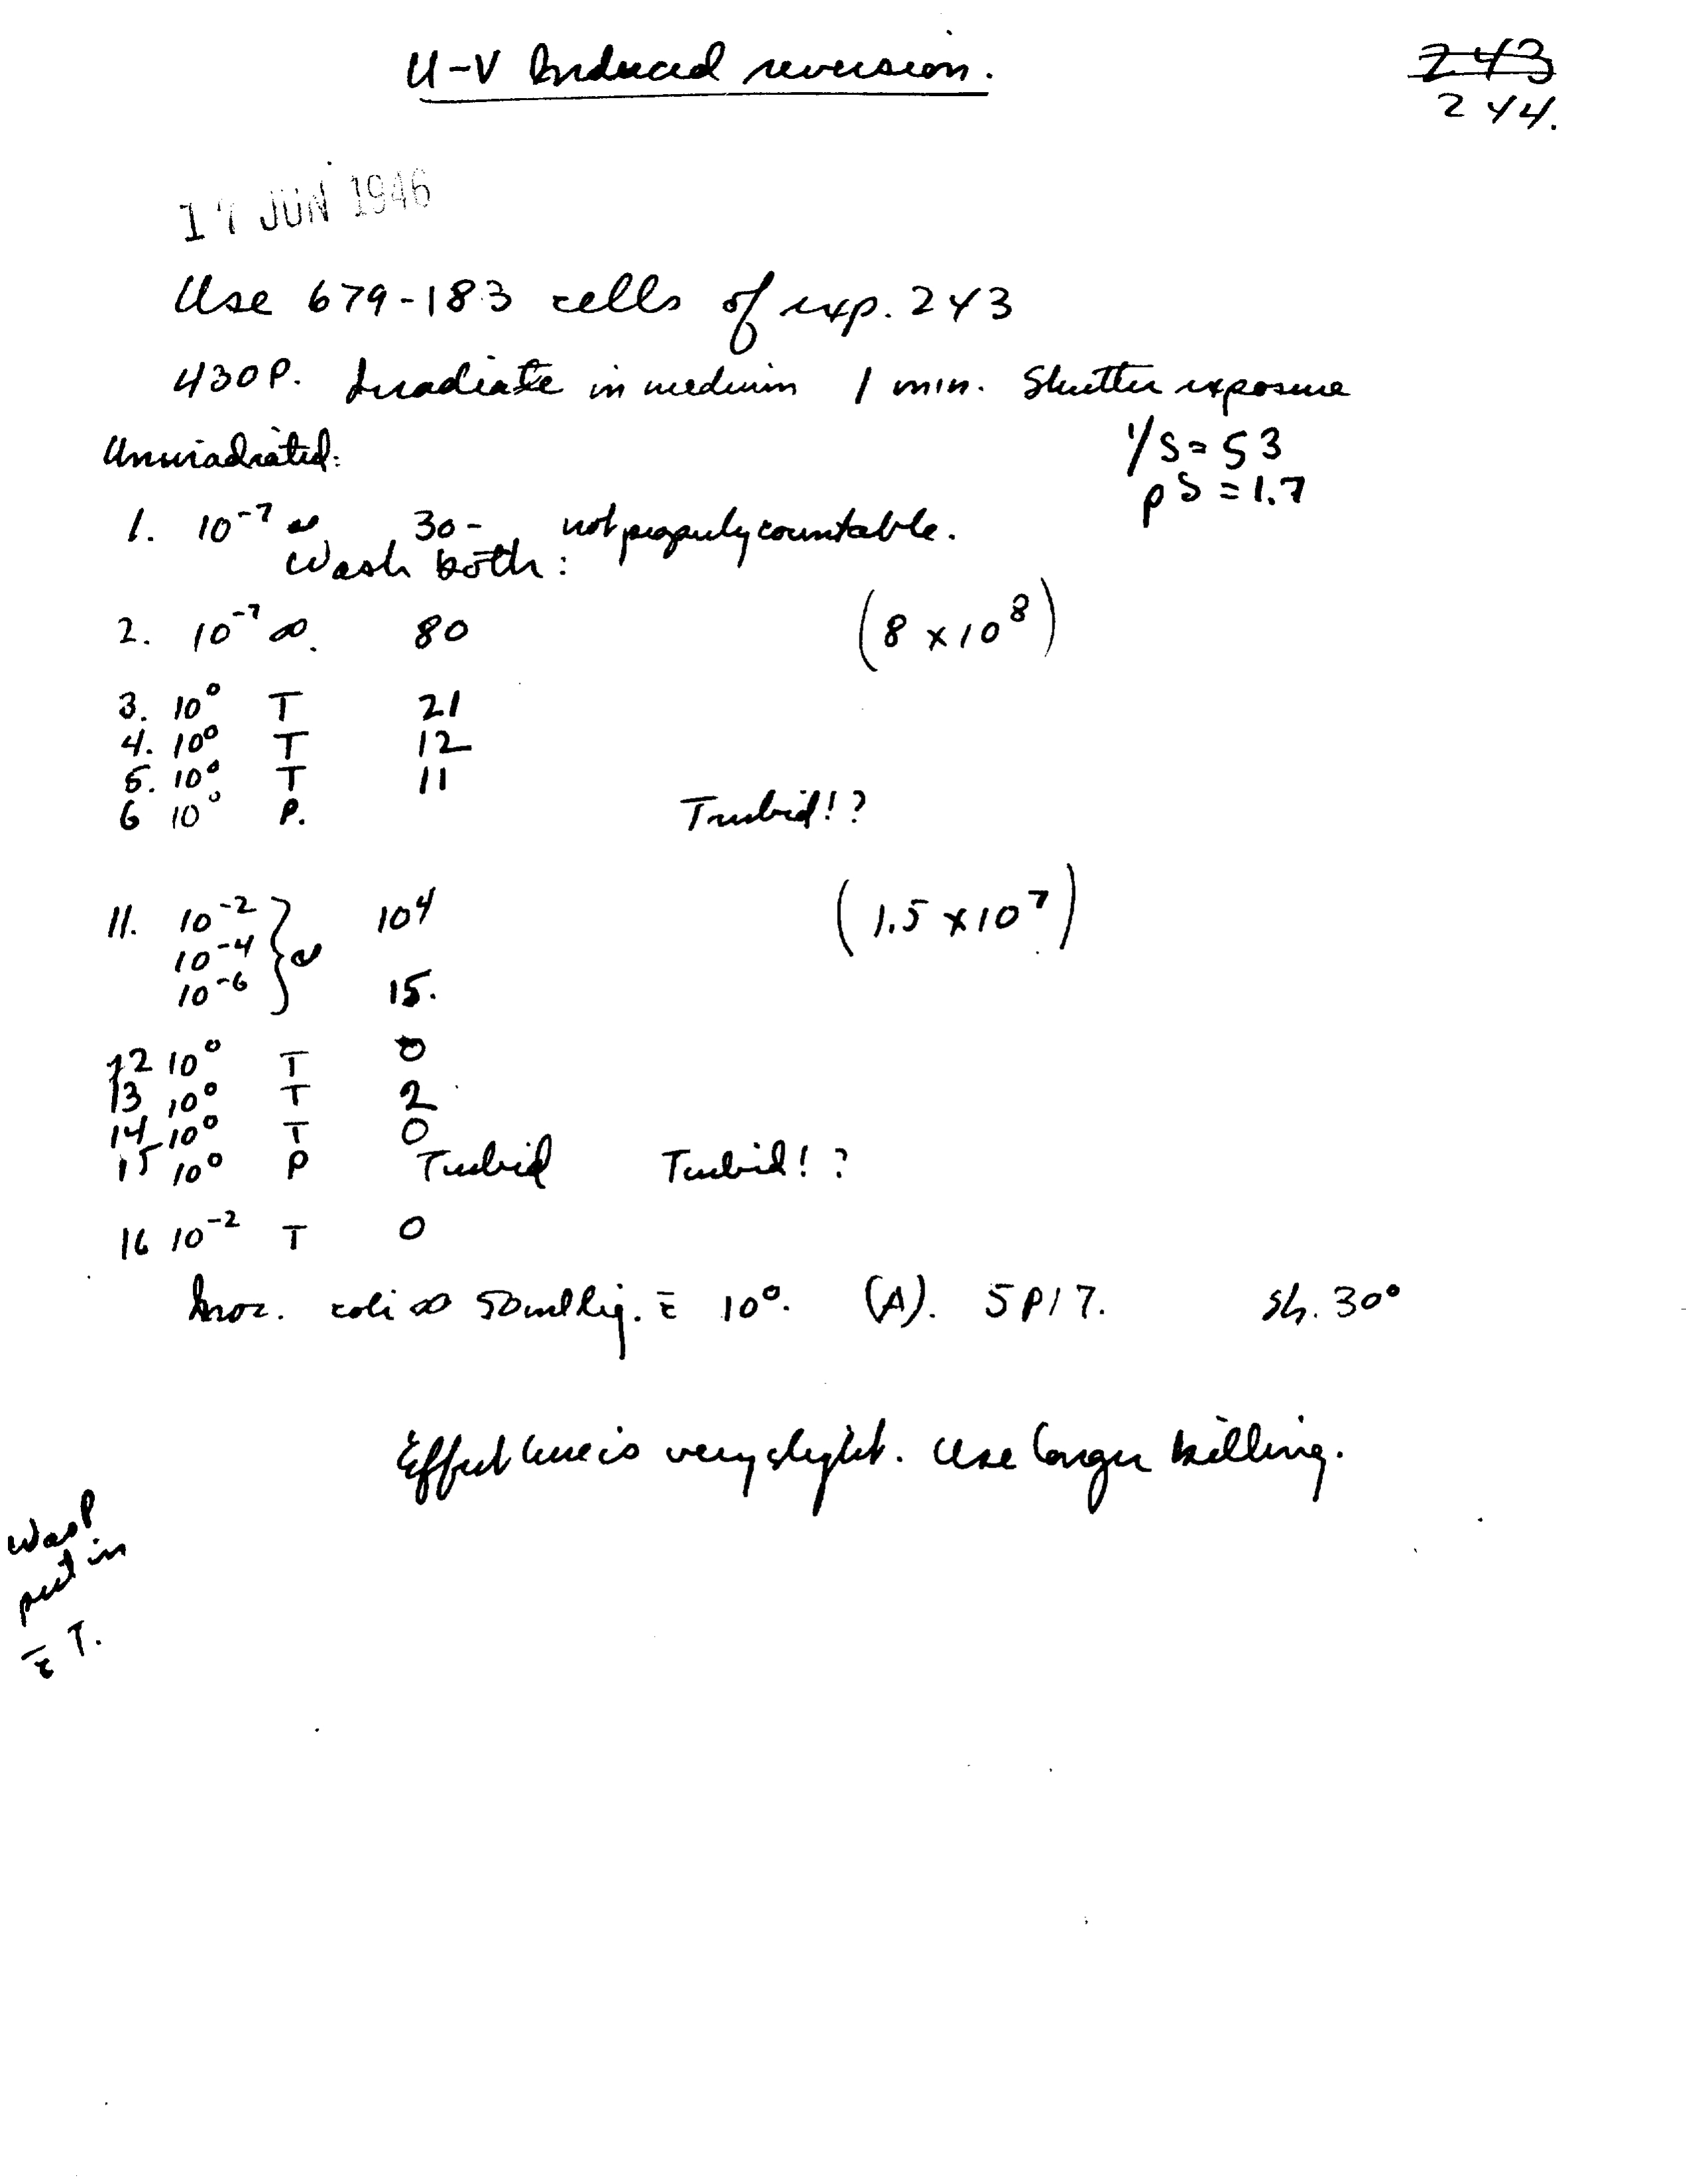 U-V Induced reversion.
243
244.
17 JUN 1946
Use 679-183 cells of exp. 243
430P. Irradiate in medium 1 min. Shutter exposure
1/S = 53
pS = 1.7
Unirradiated:
1. 10⁻⁷ ∞ 30- not properly countable.
Wash both:
2. 10⁻⁷ ∞. 80 (8 x 10⁸)
3. 10⁰ T 21
4. 10⁰ T 12
5. 10⁰ T 11
6 10⁰ P. Turbid!?
11. 10⁻² 10⁴ (1.5 x 10⁷)
10⁻⁴ } ∞
10⁻⁶ 15.
12 10⁰ T 0
13 10⁰ T 2
14 10⁰ T 0
15 10⁰ P Turbid Turbid!?
16 10⁻² T 0
Inoc. coli ∞ 50ml liq. c̄ 10⁰. (A). 5P17. Sh. 30°
Effect here is very slight. Use longer killing.
Was P
put in
c̄ T.